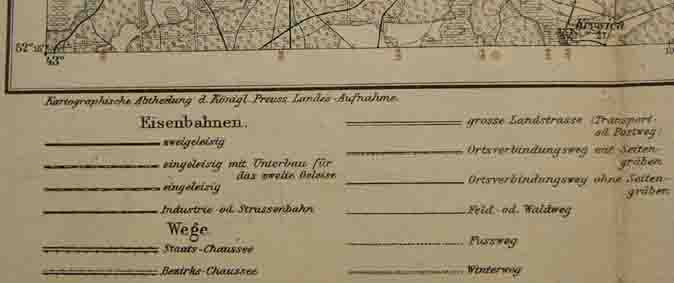 52°15'
43°
Kartographische Abtheilung d. Königl. Preuss. Landes-Aufnahme.
Eisenbahnen.
zweigeleisig
eingeleisig mit Unterbau für
das zweite Geleise
eingeleisig
Industrie- od. Strassenbahn
Wege.
Staats-Chaussee
Bezirks-Chaussee
grosse Landstrasse (Transport-
od. Postweg)
Ortsverbindungsweg mit Seiten-
gräben
Ortsverbindungsweg ohne Seiten-
gräben
Feld- od. Waldweg
Fussweg
Winterweg